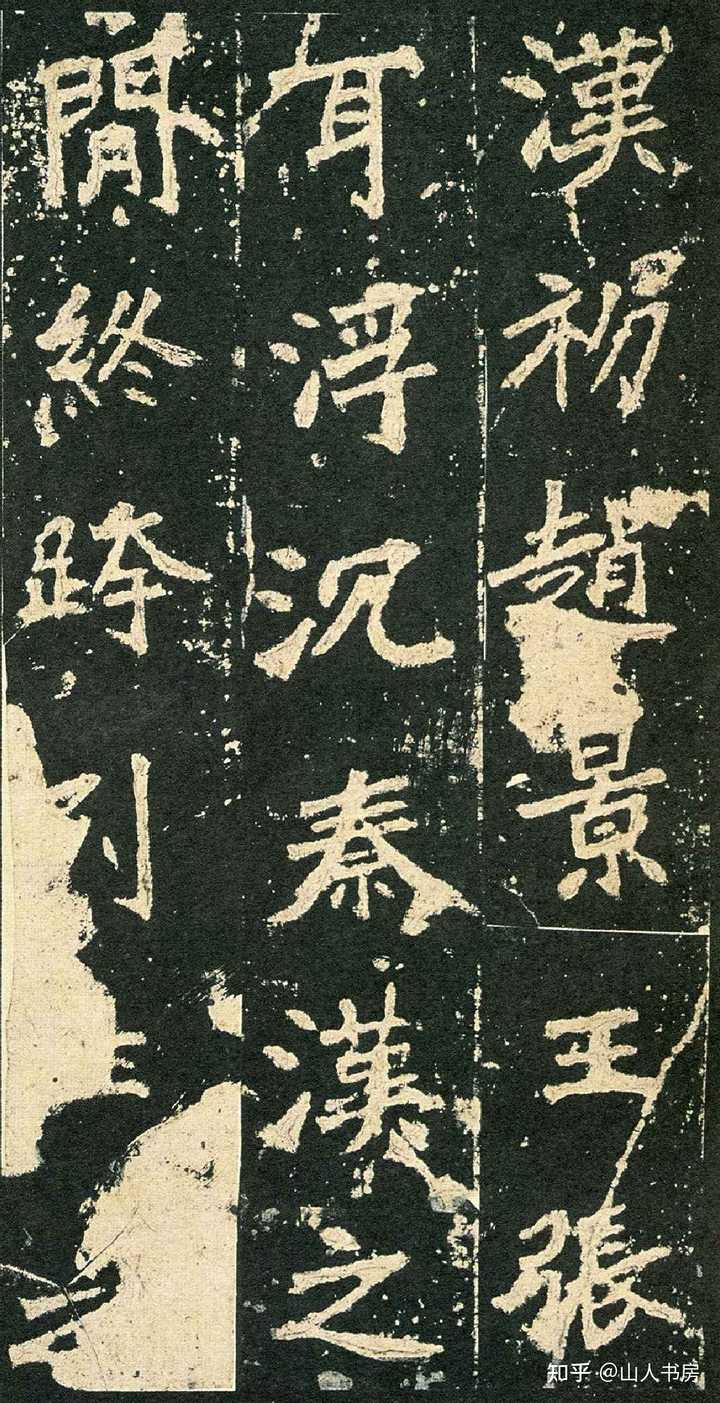 漢初趙景王張
耳浮沉秦漢之
閒終跨列
知乎 @山人书房